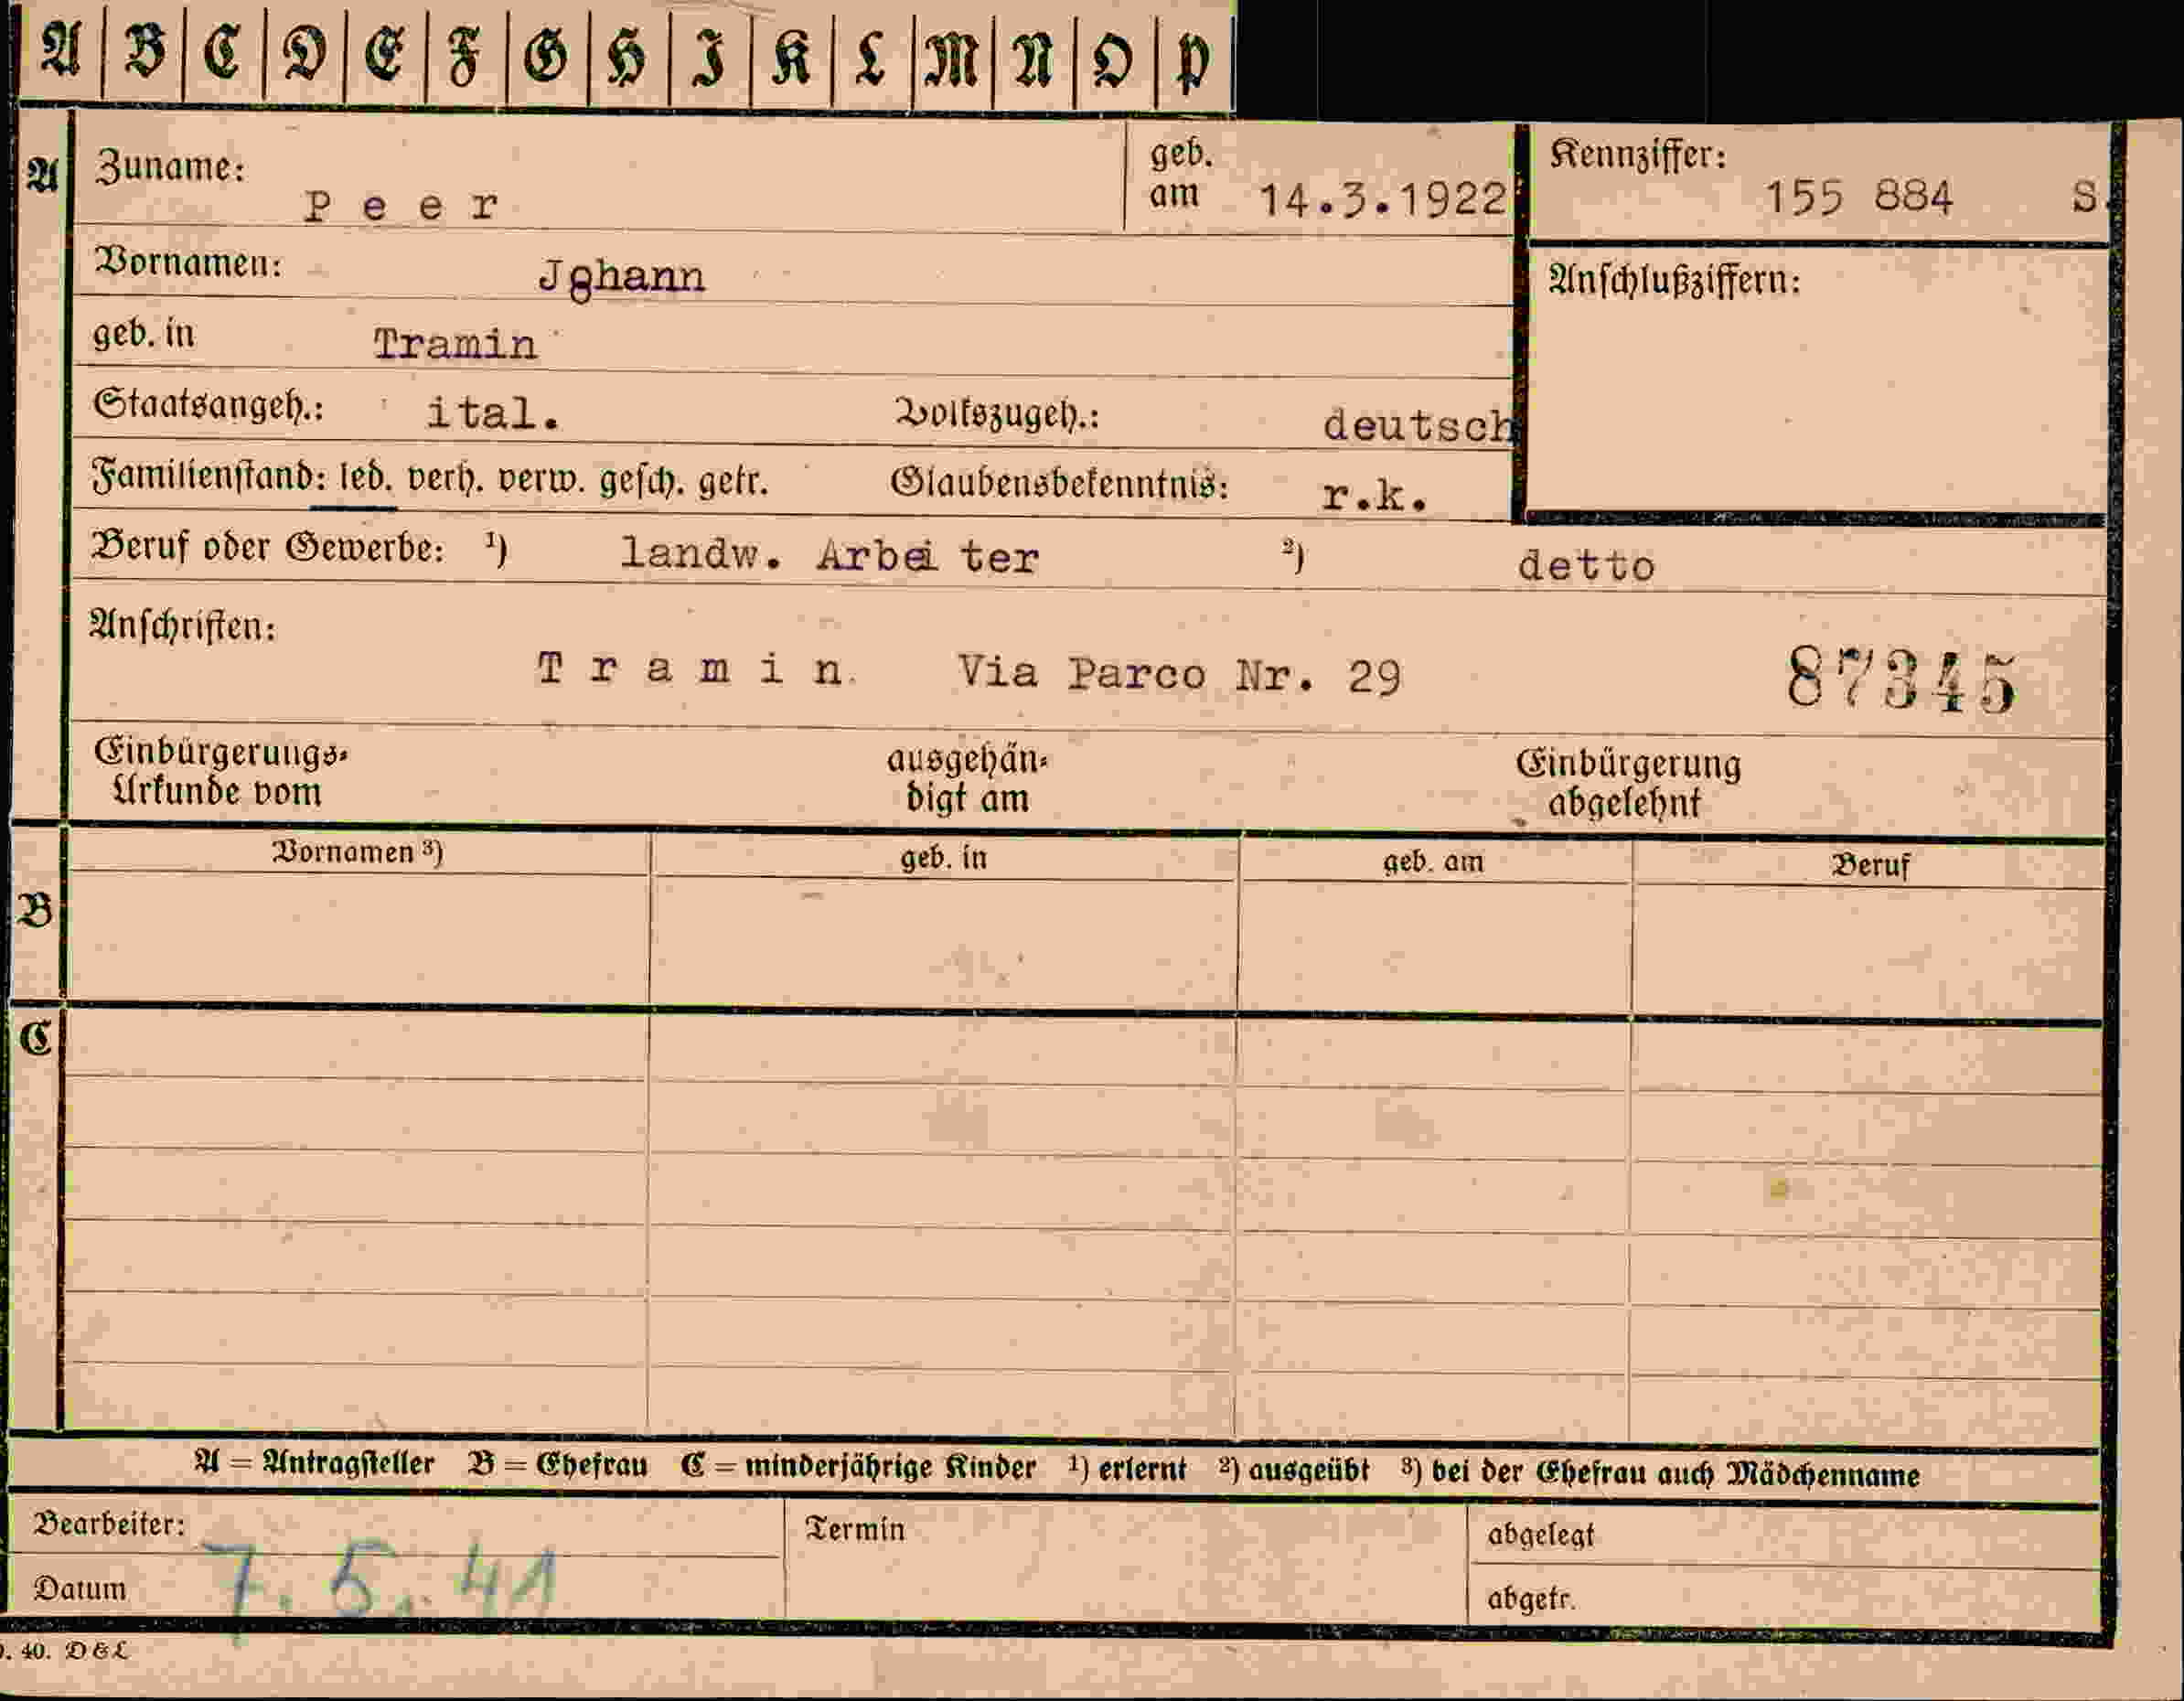 A B C D E F G H I K L M N O P
A Zuname: Peer geb. am 14.3.1922 Kennziffer: 155 884 S.
Vornamen: Johann Anschlußziffern:
geb. in Tramin
Staatsangeh.: ital. Volkszugeh.: deutsch
Familienstand: led. verh. verw. gesch. getr. Glaubensbekenntnis: r.k.
Beruf oder Gewerbe: ¹) landw. Arbeiter ²) detto
Anschriften:
Tramin Via Parco Nr. 29 87345
Einbürgerungs- ausgehän- Einbürgerung
Urkunde vom digt am abgelehnt
Vornamen ³) geb. in geb. am Beruf
B
C
A = Antragsteller B = Ehefrau C = minderjährige Kinder ¹) erlernt ²) ausgeübt ³) bei der Ehefrau auch Mädchenname
Bearbeiter: Termin abgelegt
Datum 7.5.41 abgetr.
40. D&L